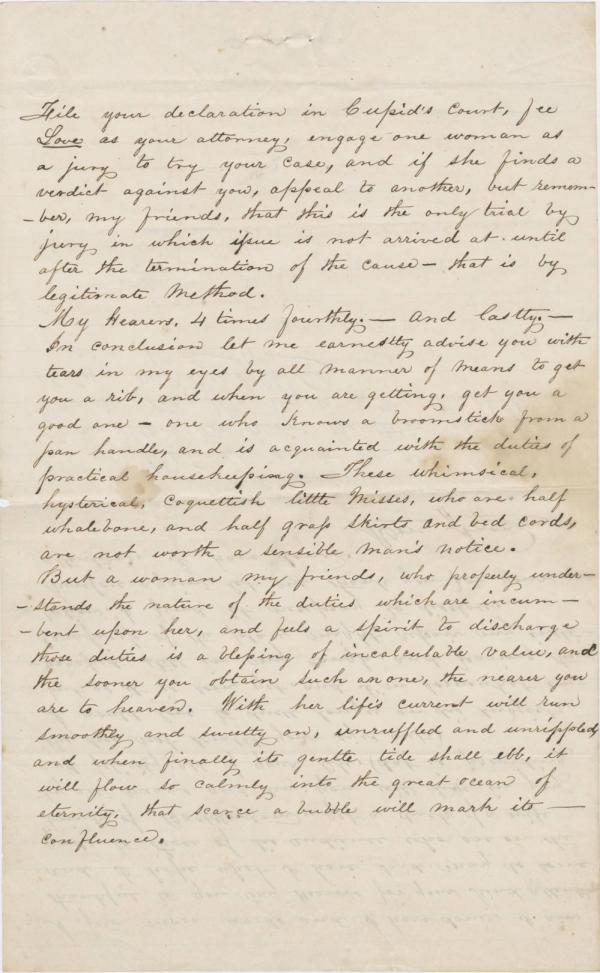 File your declaration in Cupid's Court, fee
Love as your attorney, engage one woman as
a jury to try your case, and if she finds a
verdict against you, appeal to another, but remem-
-ber, my friends, that this is the only trial by
jury in which issue is not arrived at until
after the termination of the cause - that is by
legitimate Method.
My Hearers. 4 times fourthly. — And lastly. —
In conclusion let me earnestly advise you with
tears in my eyes by all manner of means to get
you a rib, and when you are getting, get you a
good one - one who knows a broomstick from a
pan handle, and is acquainted with the duties of
practical housekeeping. These whimsical,
hysterical, Coquettish little Misses, who are half
whalebone, and half grass skirts and bed cords,
are not worth a sensible man's notice.
But a woman my friends, who properly under-
-stands the nature of the duties which are incum-
-bent upon her, and feels a spirit to discharge
those duties is a blessing of incalculable value, and
the sooner you obtain such an one, the nearer you
are to heaven. With her life's current will run
smoothly and sweetly on, unruffled and unrippled,
and when finally its gentle tide shall ebb, it
will flow so calmly into the great ocean of
eternity, that scarce a bubble will mark its —
confluence.